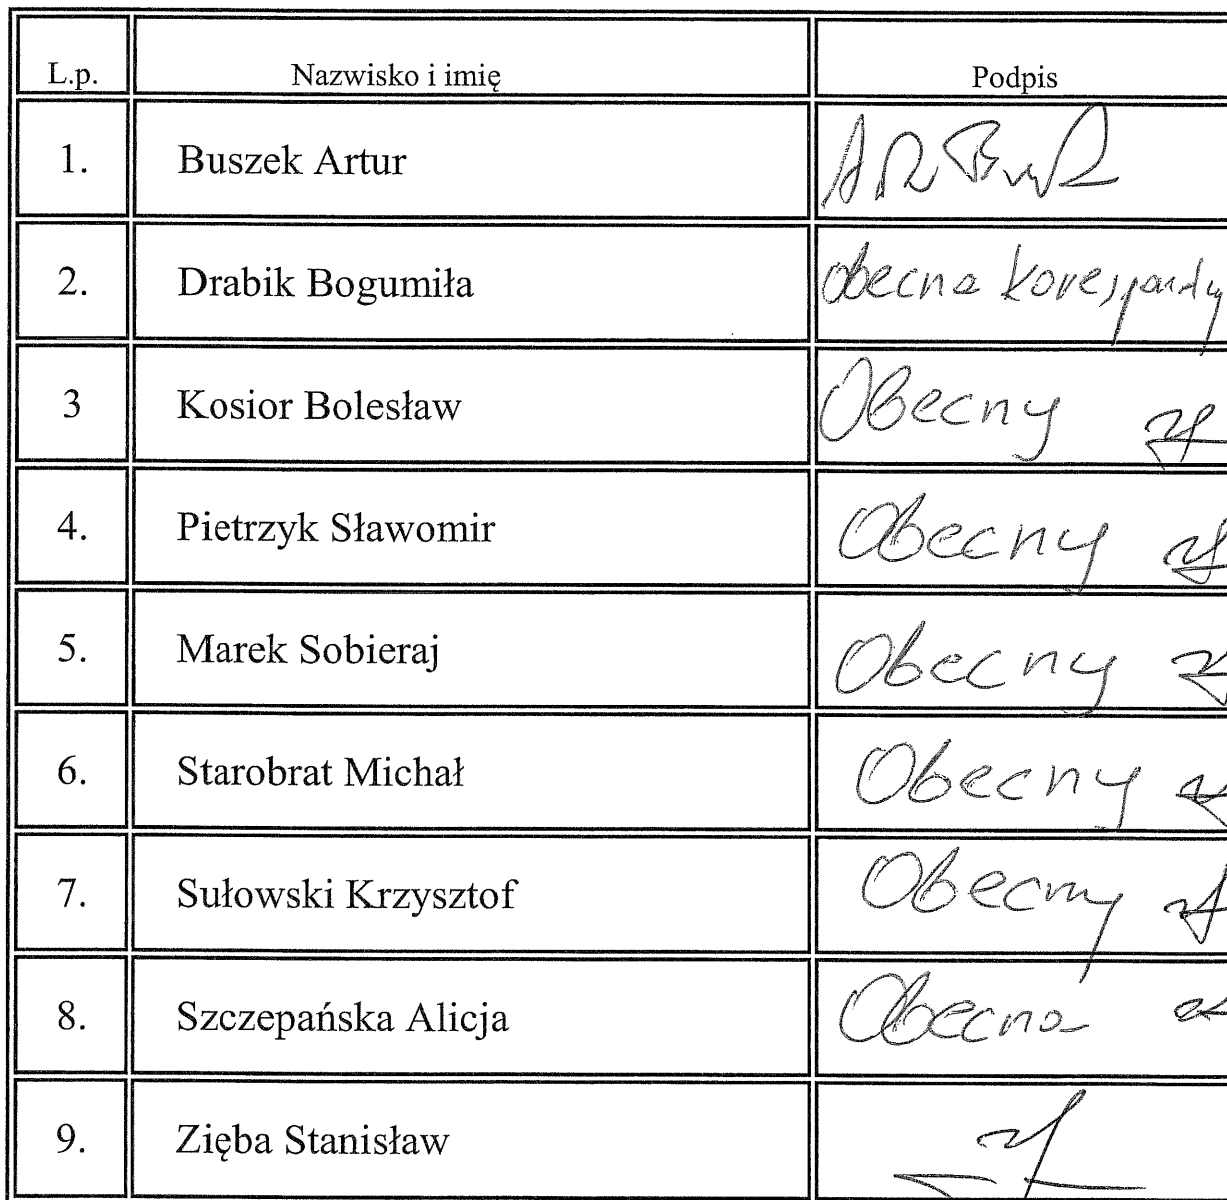 L.p. Nazwisko i imię Podpis
1. Buszek Artur
2. Drabik Bogumiła obecna
3 Kosior Bolesław Obecny
4. Pietrzyk Sławomir Obecny
5. Marek Sobieraj Obecny
6. Starobrat Michał Obecny
7. Sułowski Krzysztof Obecny
8. Szczepańska Alicja Obecna
9. Zięba Stanisław